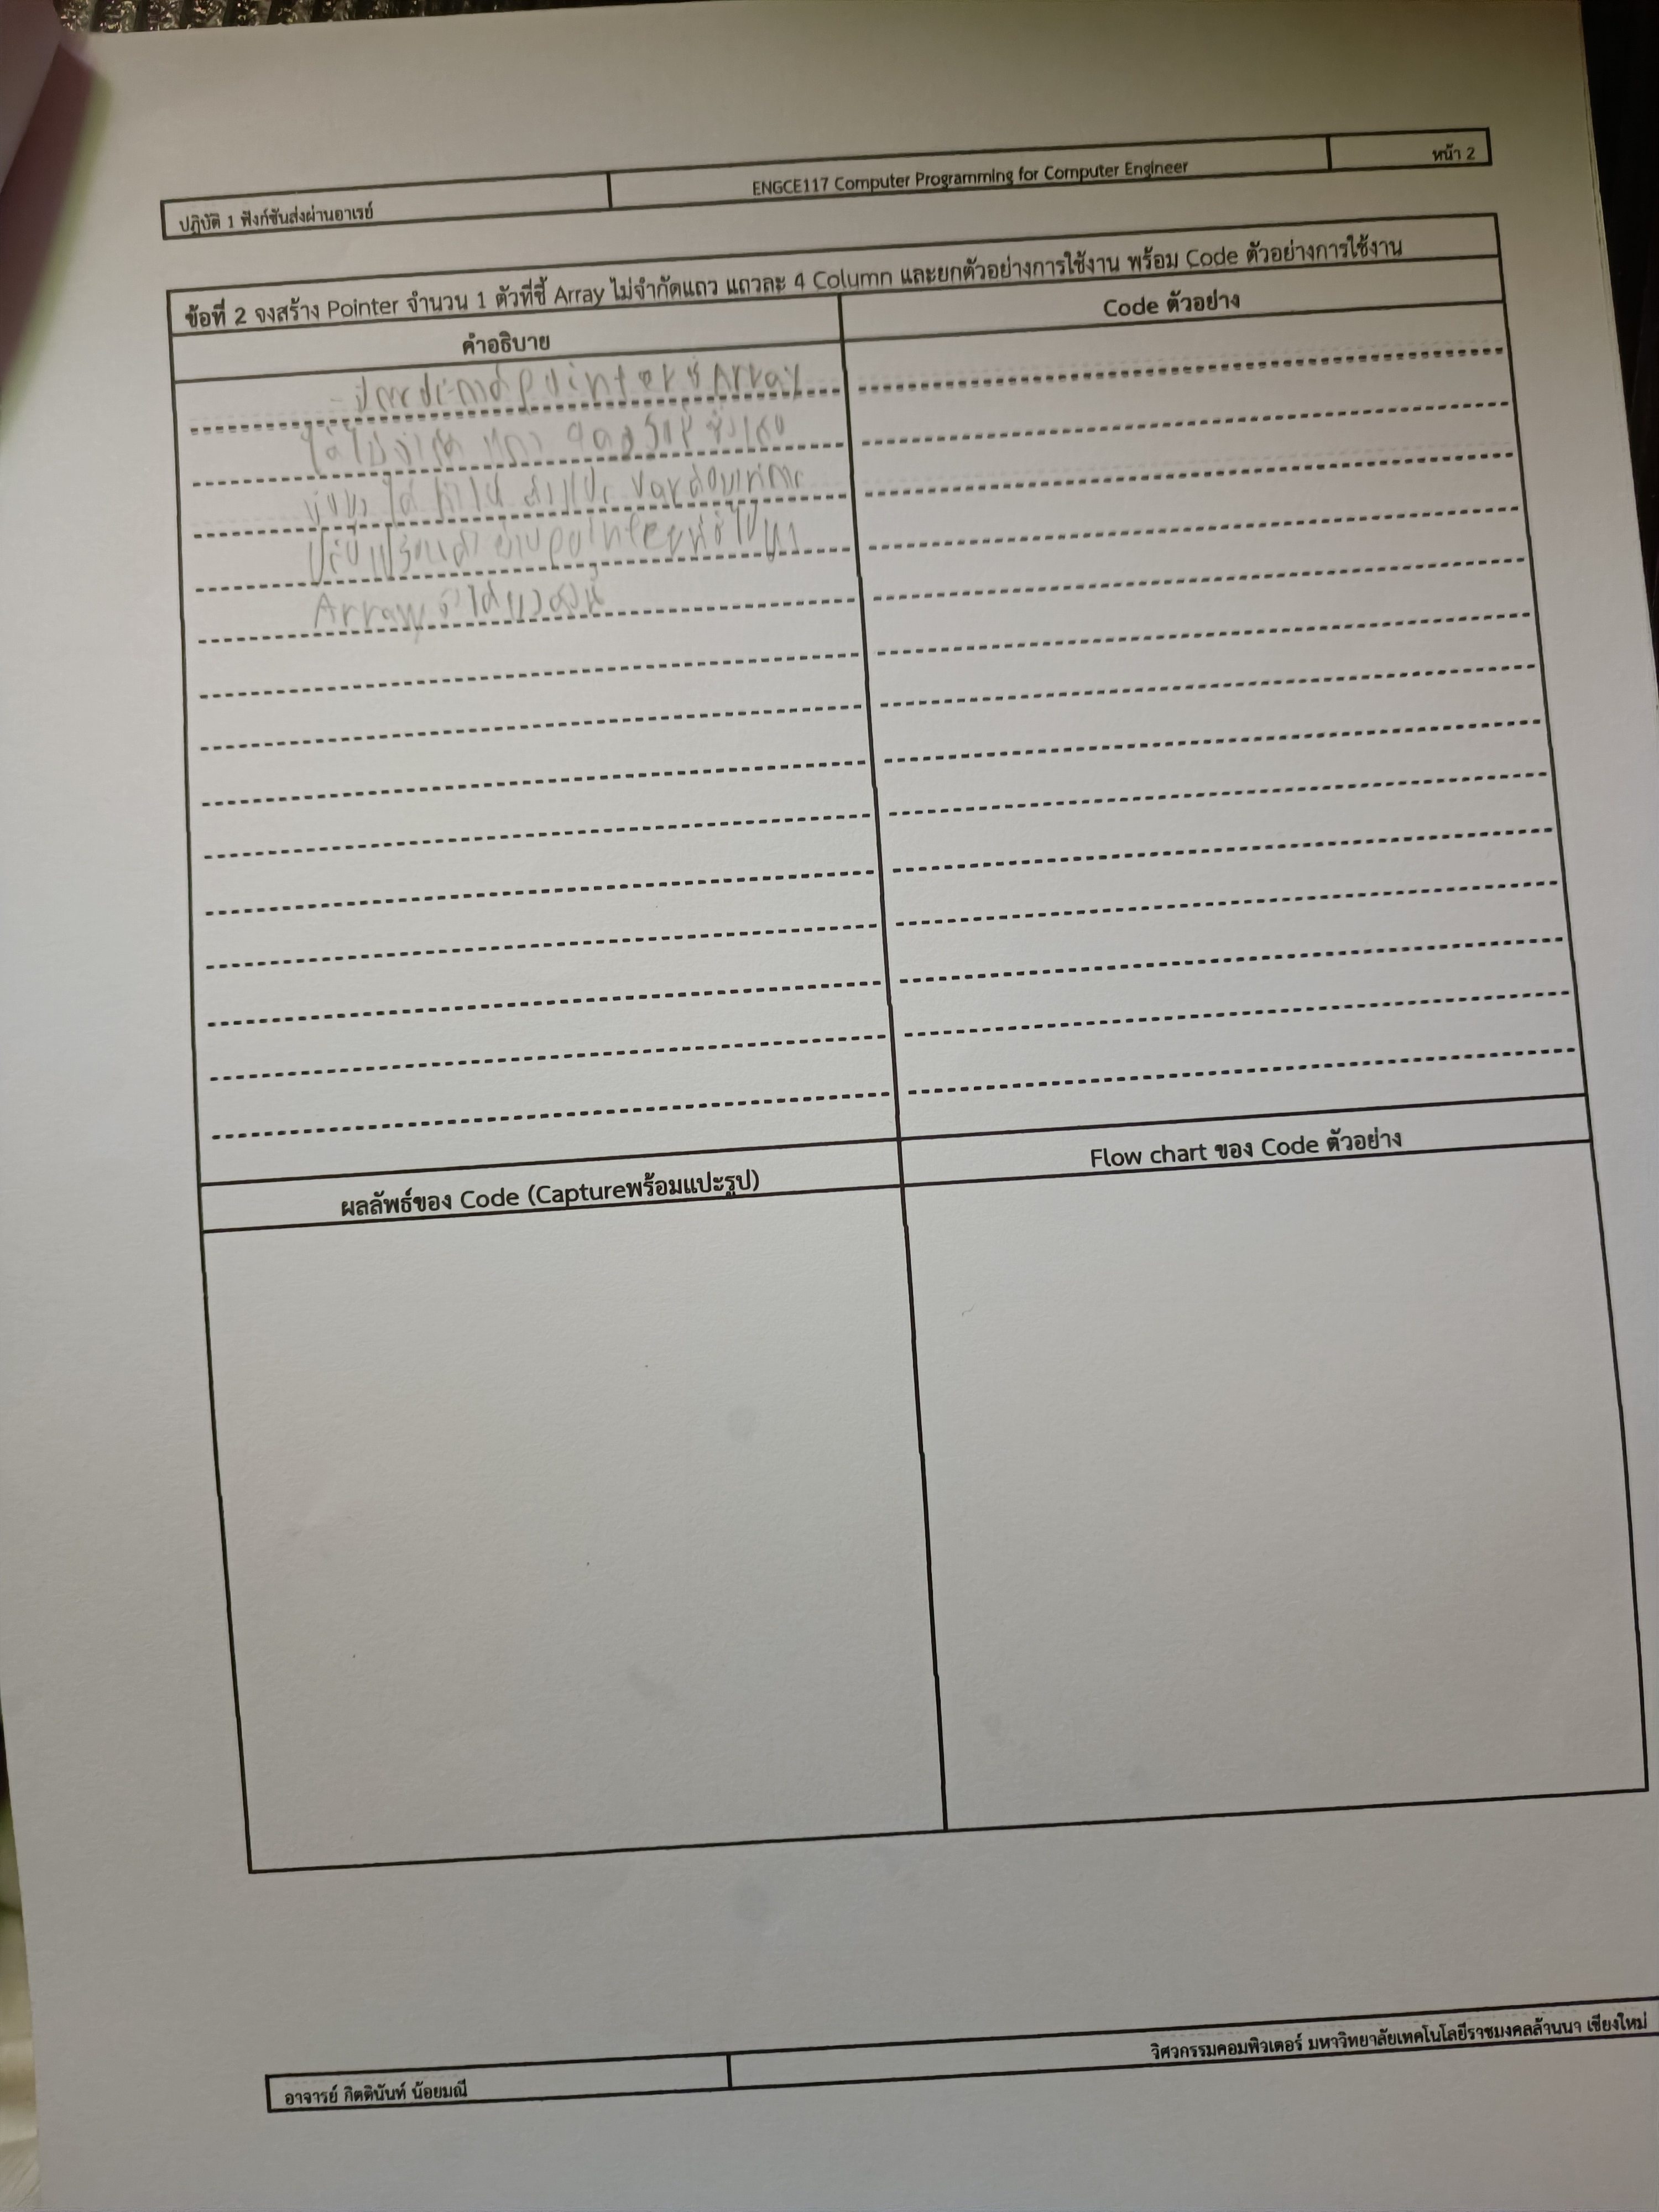 ปฏิบัติ 1 ฟังก์ชันส่งผ่านอาเรย์
ENGCE117 Computer Programming for Computer Engineer
หน้า 2
ข้อที่ 2 จงสร้าง Pointer จำนวน 1 ตัวที่ชี้ Array ไม่จำกัดแถว แถวละ 4 Column และยกตัวอย่างการใช้งาน พร้อม Code ตัวอย่างการใช้งาน
คำอธิบาย
Code ตัวอย่าง
Pointer ชี้ Array
ได้ไม่จำกัด แถว
pointer
Array
ผลลัพธ์ของ Code (Captureพร้อมแปะรูป)
Flow chart ของ Code ตัวอย่าง
อาจารย์ กิตตินันท์ น้อยมณี
วิศวกรรมคอมพิวเตอร์ มหาวิทยาลัยเทคโนโลยีราชมงคลล้านนา เชียงใหม่